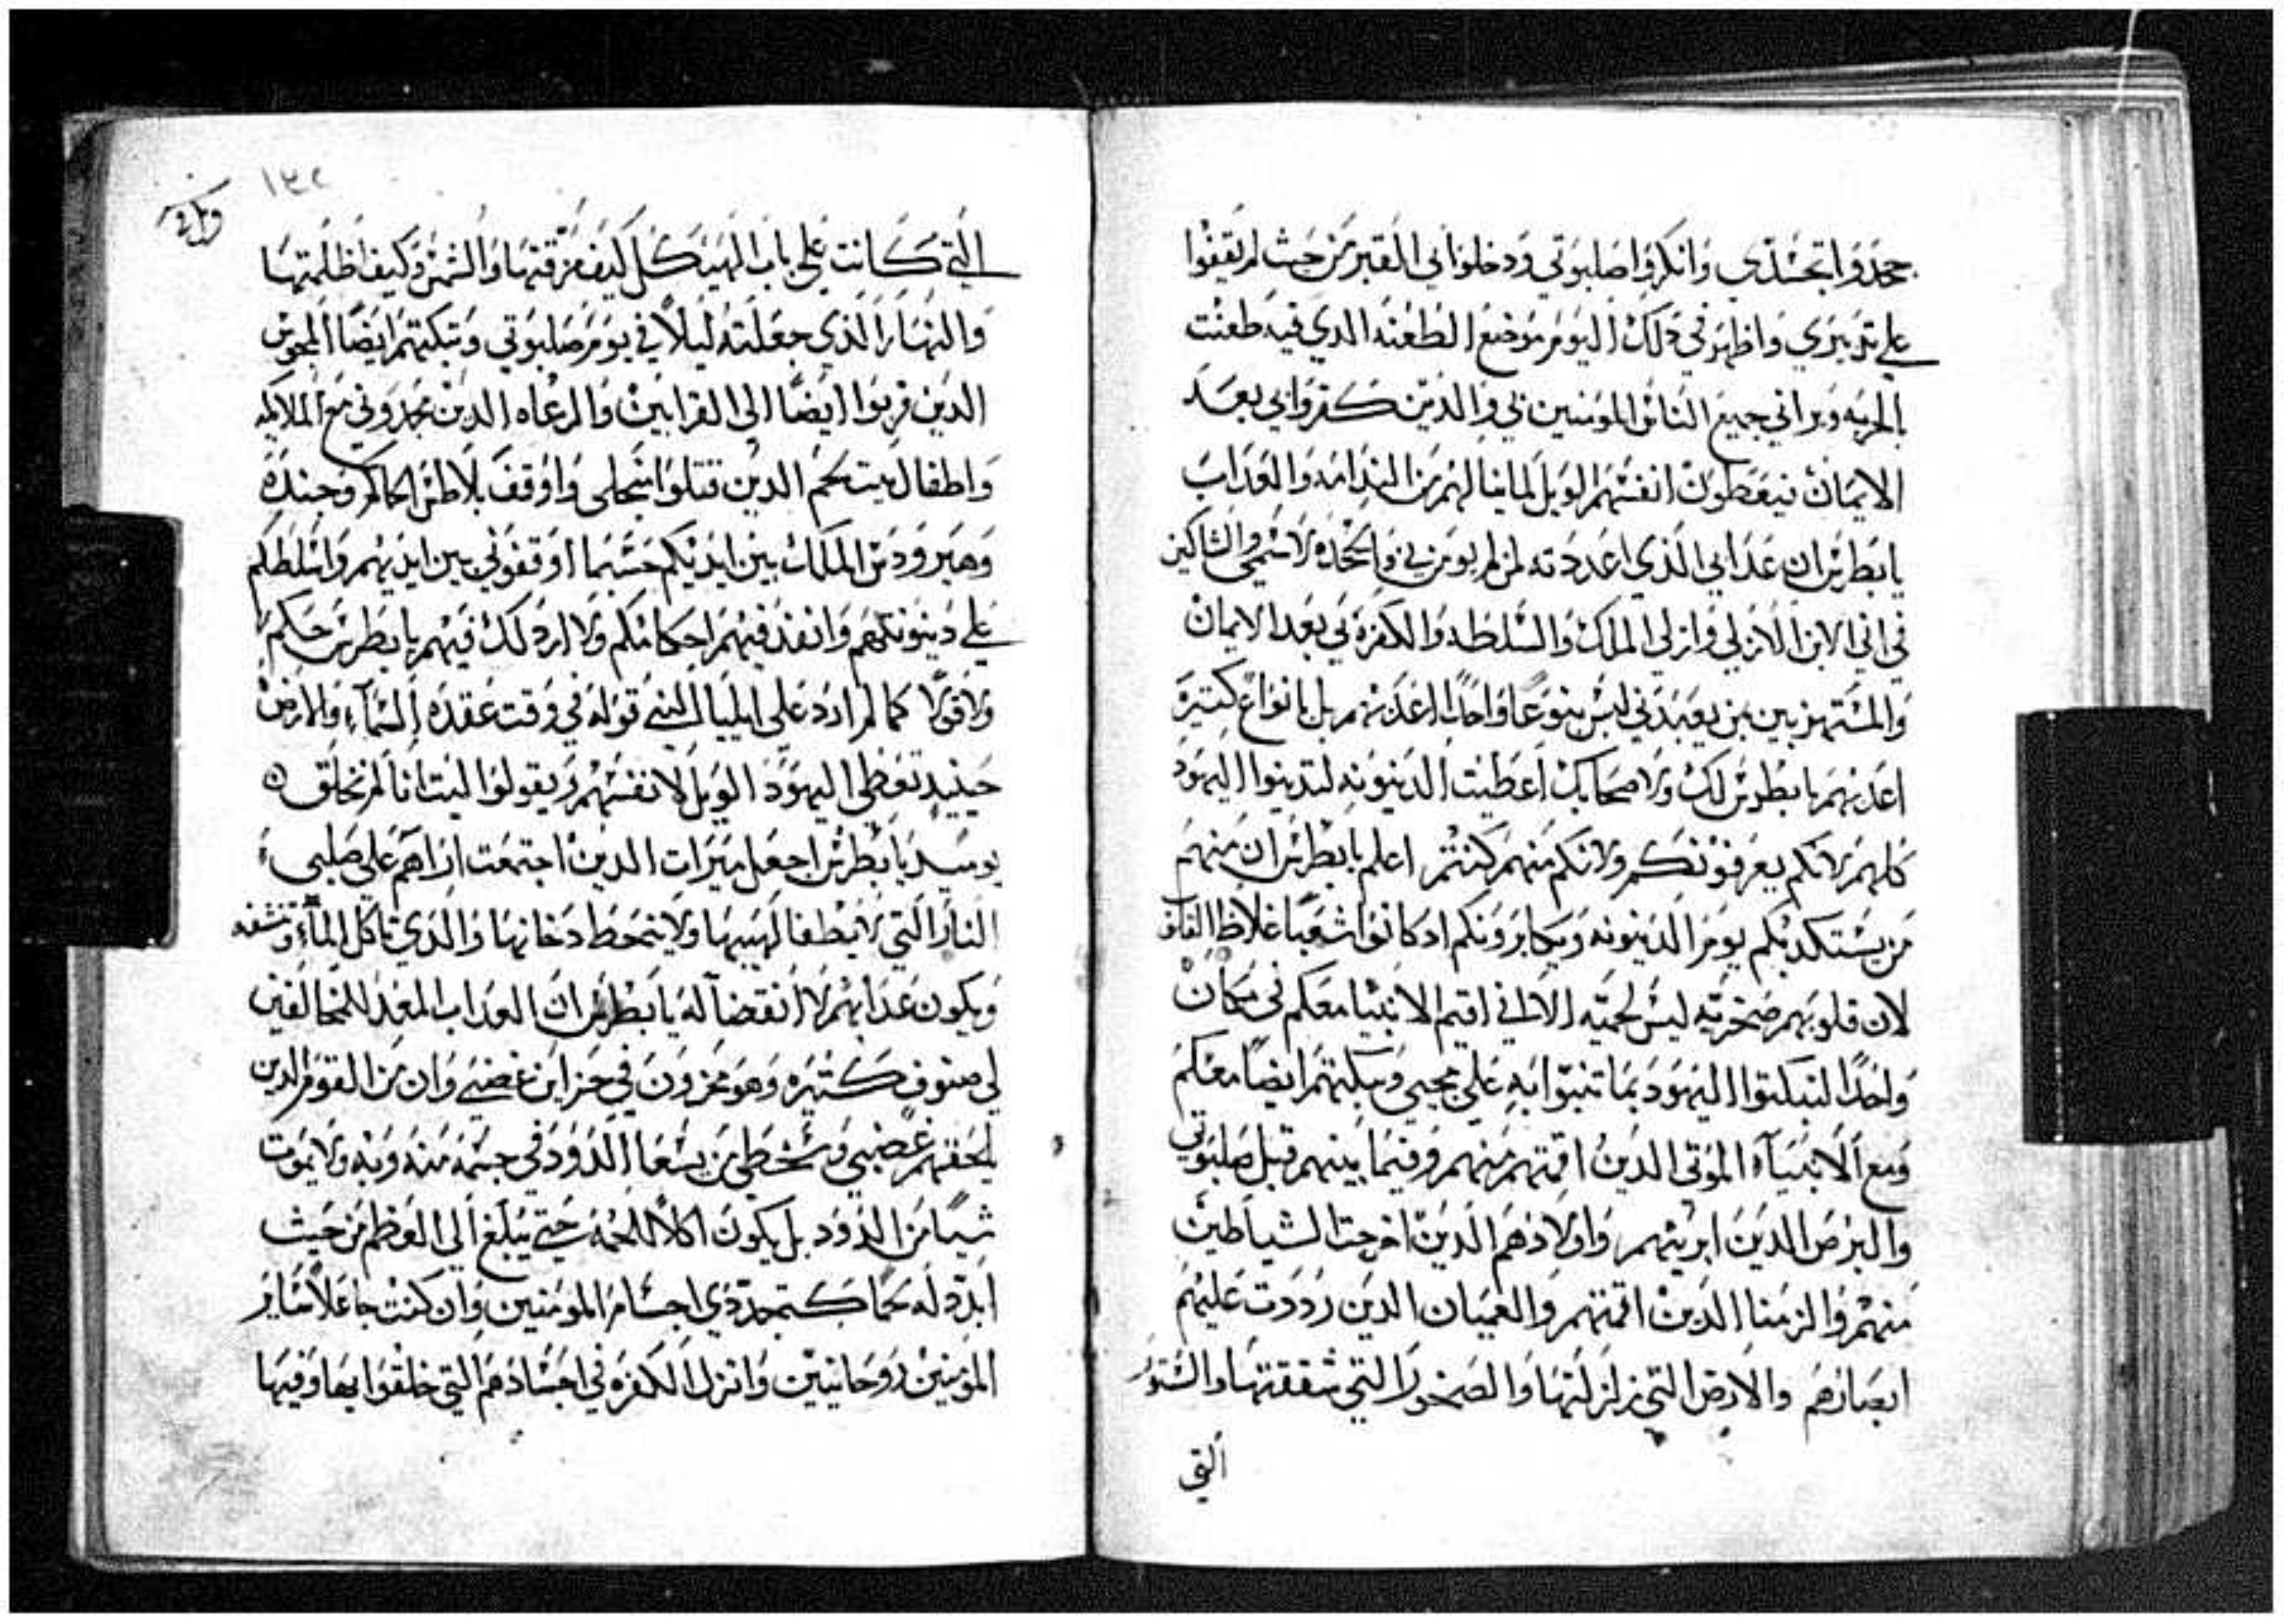 جحدوا تجسدي وانكروا صلبوتي ودخلوا الي القبر من حيث لم يقفوا
علي تدبيري واظهر في دلك اليوم موضع الطعنه الدي فيه طعنت
بالحربه ويراني جميع الناس المومنين بي والدين كفروا بي بعد
الايمان فيعطون انفسهم الويل لما ينالهم من الندامه والعداب
يا بطرس ان عدابي الدي اعددته لمن لم يومن بي والجحده لاسمي والشاكين
في اني الابن الازلي وازلي الملك والسلطه والكفرة بي بعد الايمان
والمستهزيين بمن يعبدني ليس بنوعا واحدا اعدبهم بل بانواع كتيرة
اعدبهم يا بطرس لك ولاصحابك اعطيت الدينونه لتدينوا اليهود
كلهم لانكم يعرفونكم ولانكم منهم كنتم اعلم يا بطرس ان منهم
من يستكدبكم يوم الدينونه ويكابرونكم ادكانوا شعبا غلاظ
لان قلوبهم صخريه ليس لحميه الا اني اقيم الانبيا معكم في مكان
واحدا لتبكتوا اليهود بما تنبوا به علي مجيي وتبكتهم ايضا معكم
ومع الانبياء الموتي الدين اقمتهم منهم وفيما بينهم قبل صلبوتي
والبرص الدين ابريتهم واولادهم الدين اخرجت الشياطين
منهم والزمنا الدين اقمتهم والعميان الدين رددت عليهم
ابصارهم والارض التي زلزلتها والصخور التي شققتها والستور
التي
١٣٢
التي كانت علي باب الهيكل كيف مزقتها والشمس وكيف اظلمتها
والنهار الذي جعلته ليلاً في يوم صلبوتي وتبكتهم ايضا المجوس
الدين قربوا ايضا الي القرابين والرعاه الدين مجدوني مع الملايكه
واطفال بيت لحم الدين قتلوا من اجلي واوقف بلاطس الحاكم وجنده
وهيرودس الملك بين ايديكم حسبما اوقفوني بين ايديهم واسلطكم
علي دينونتهم وانفد فيهم احكامكم ولا ارد لك فيهم يا بطرس حكم
ولا قولا كما لم ارد علي ايليا النبي قوله في وقت عقده السماء والارض
حينيد تعطي اليهود الويل لانفسهم ويقولوا ليت انا لم نخلق
يوميد يا بطرس اجعل ميرات الدين اجتمعت اراهم علي صلبي
النار التي لا يطفا لهيبها ولا ينحط دخانها والدي تاكل الماء وتنشفه
ويكون عدابهم لا انقضا له يا بطرس ان العداب المعد للمخالفين
لي صنوف كتيره وهو مخزون في خزاين غضبي وان من القوم الدين
يلحقهم غضبي وسخطي من يسعا الدود في جسمه منه وبه ولا يموت
شيا من الدود بل يكون اكلا للحمه حتي يبلغ الي العظم من حيث
ابدد له لحما كتجددي اجسام المومنين وان كنت جاعلا ساير
المومنين روحانيين وانزل الكفره في اجسادهم التي خلقوا بها وفيها